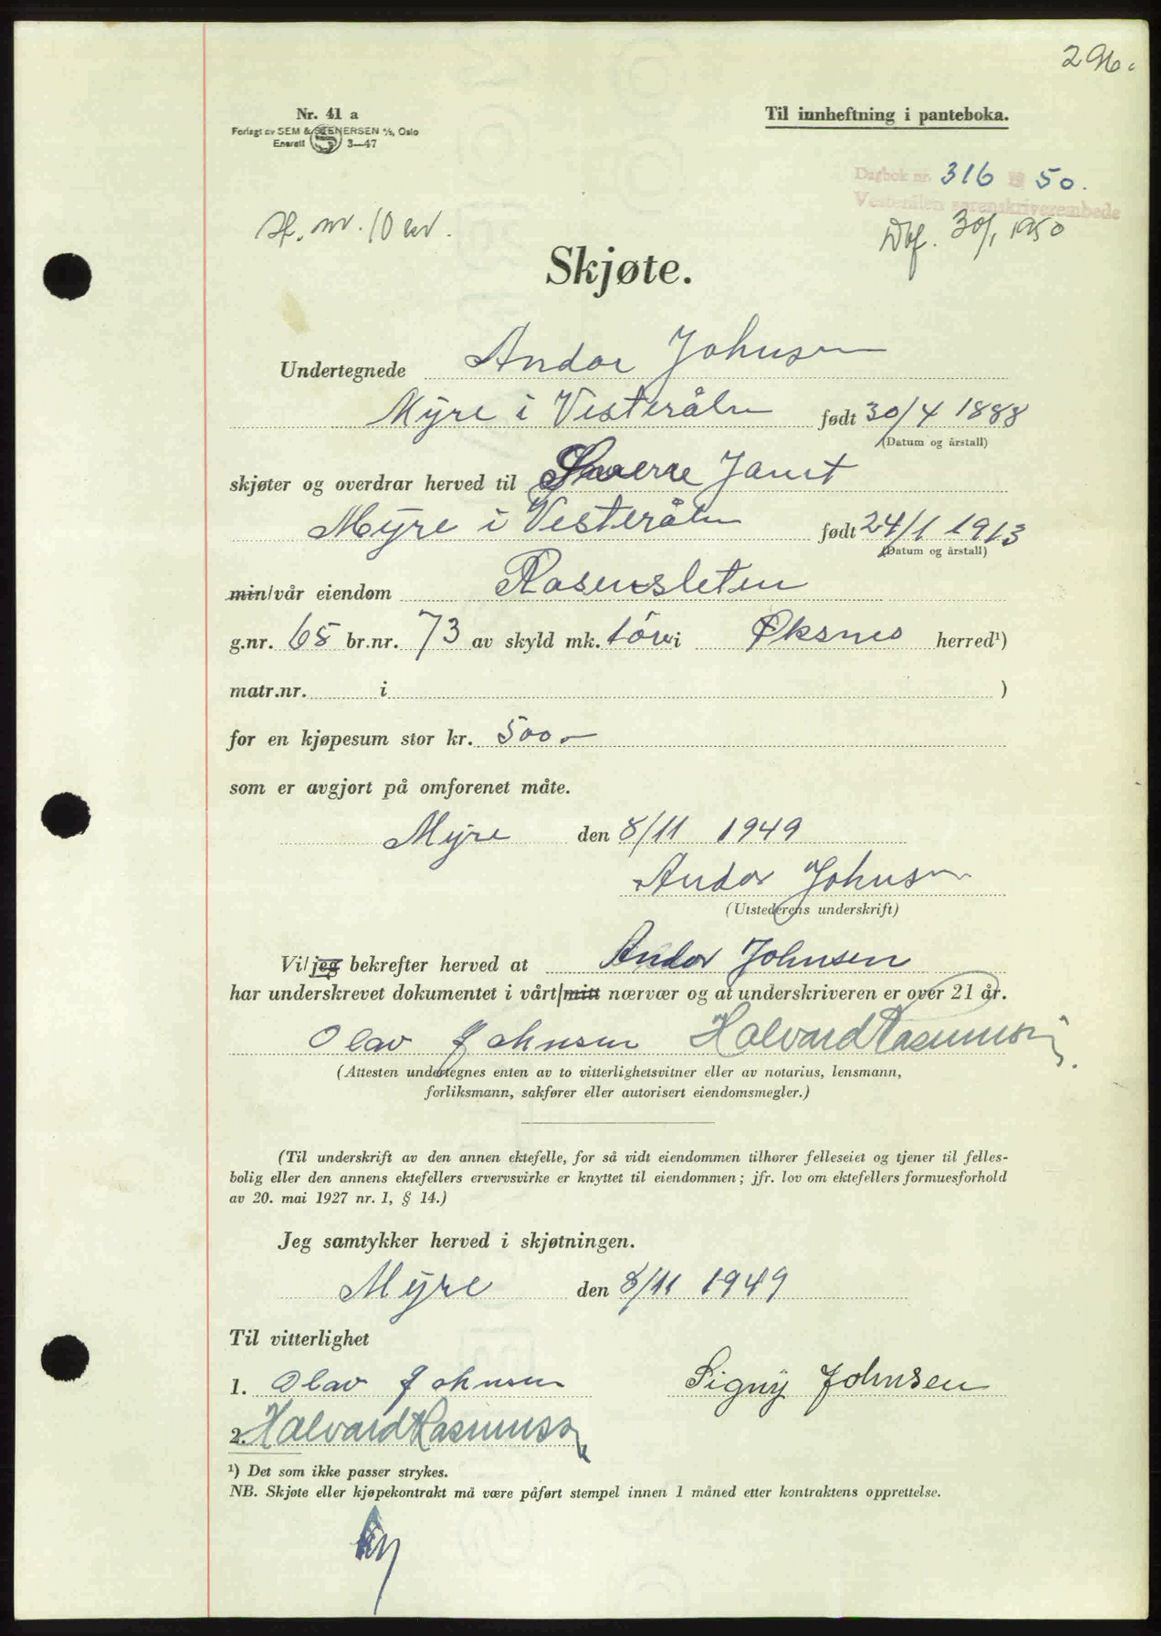 296.
Nr. 41 a
Forlagt av SEM & STENERSEN A/S, Oslo
Enerett 3—47
Til innheftning i panteboka.
Dagbok nr. 316 19 50.
Vesterålen sorenskriverembede
30/1 1950
Skjøte.
Undertegnede Andor Johnsen
Myre i Vesterålen født 30/4 1888
(Datum og årstall)
skjøter og overdrar herved til Sverre Jamt
Myre i Vesterålen født 24/1 1913
(Datum og årstall)
min/vår eiendom
g.nr. 65 br.nr. 73 av skyld mk. 1 øre i Øksnes herred¹)
matr.nr. i )
for en kjøpesum stor kr. 500.-
som er avgjort på omforenet måte.
Myre den 8/11 1949
Andor Johnsen
(Utstederens underskrift)
Vi/jeg bekrefter herved at Andor Johnsen
har underskrevet dokumentet i vårt/mitt nærvær og at underskriveren er over 21 år.
Olav Johnsen Halvard Rasmussen
(Attesten undertegnes enten av to vitterlighetsvitner eller av notarius, lensmann,
forliksmann, sakfører eller autorisert eiendomsmegler.)
(Til underskrift av den annen ektefelle, for så vidt eiendommen tilhører felleseiet og tjener til felles-
bolig eller den annens ektefellers ervervsvirke er knyttet til eiendommen; jfr. lov om ektefellers formuesforhold
av 20. mai 1927 nr. 1, § 14.)
Jeg samtykker herved i skjøtningen.
Myre den 8/11 1949
Til vitterlighet
1. Olav Johnsen Signy Johnsen
2. Halvard Rasmussen
¹) Det som ikke passer strykes.
NB. Skjøte eller kjøpekontrakt må være påført stempel innen 1 måned etter kontraktens opprettelse.